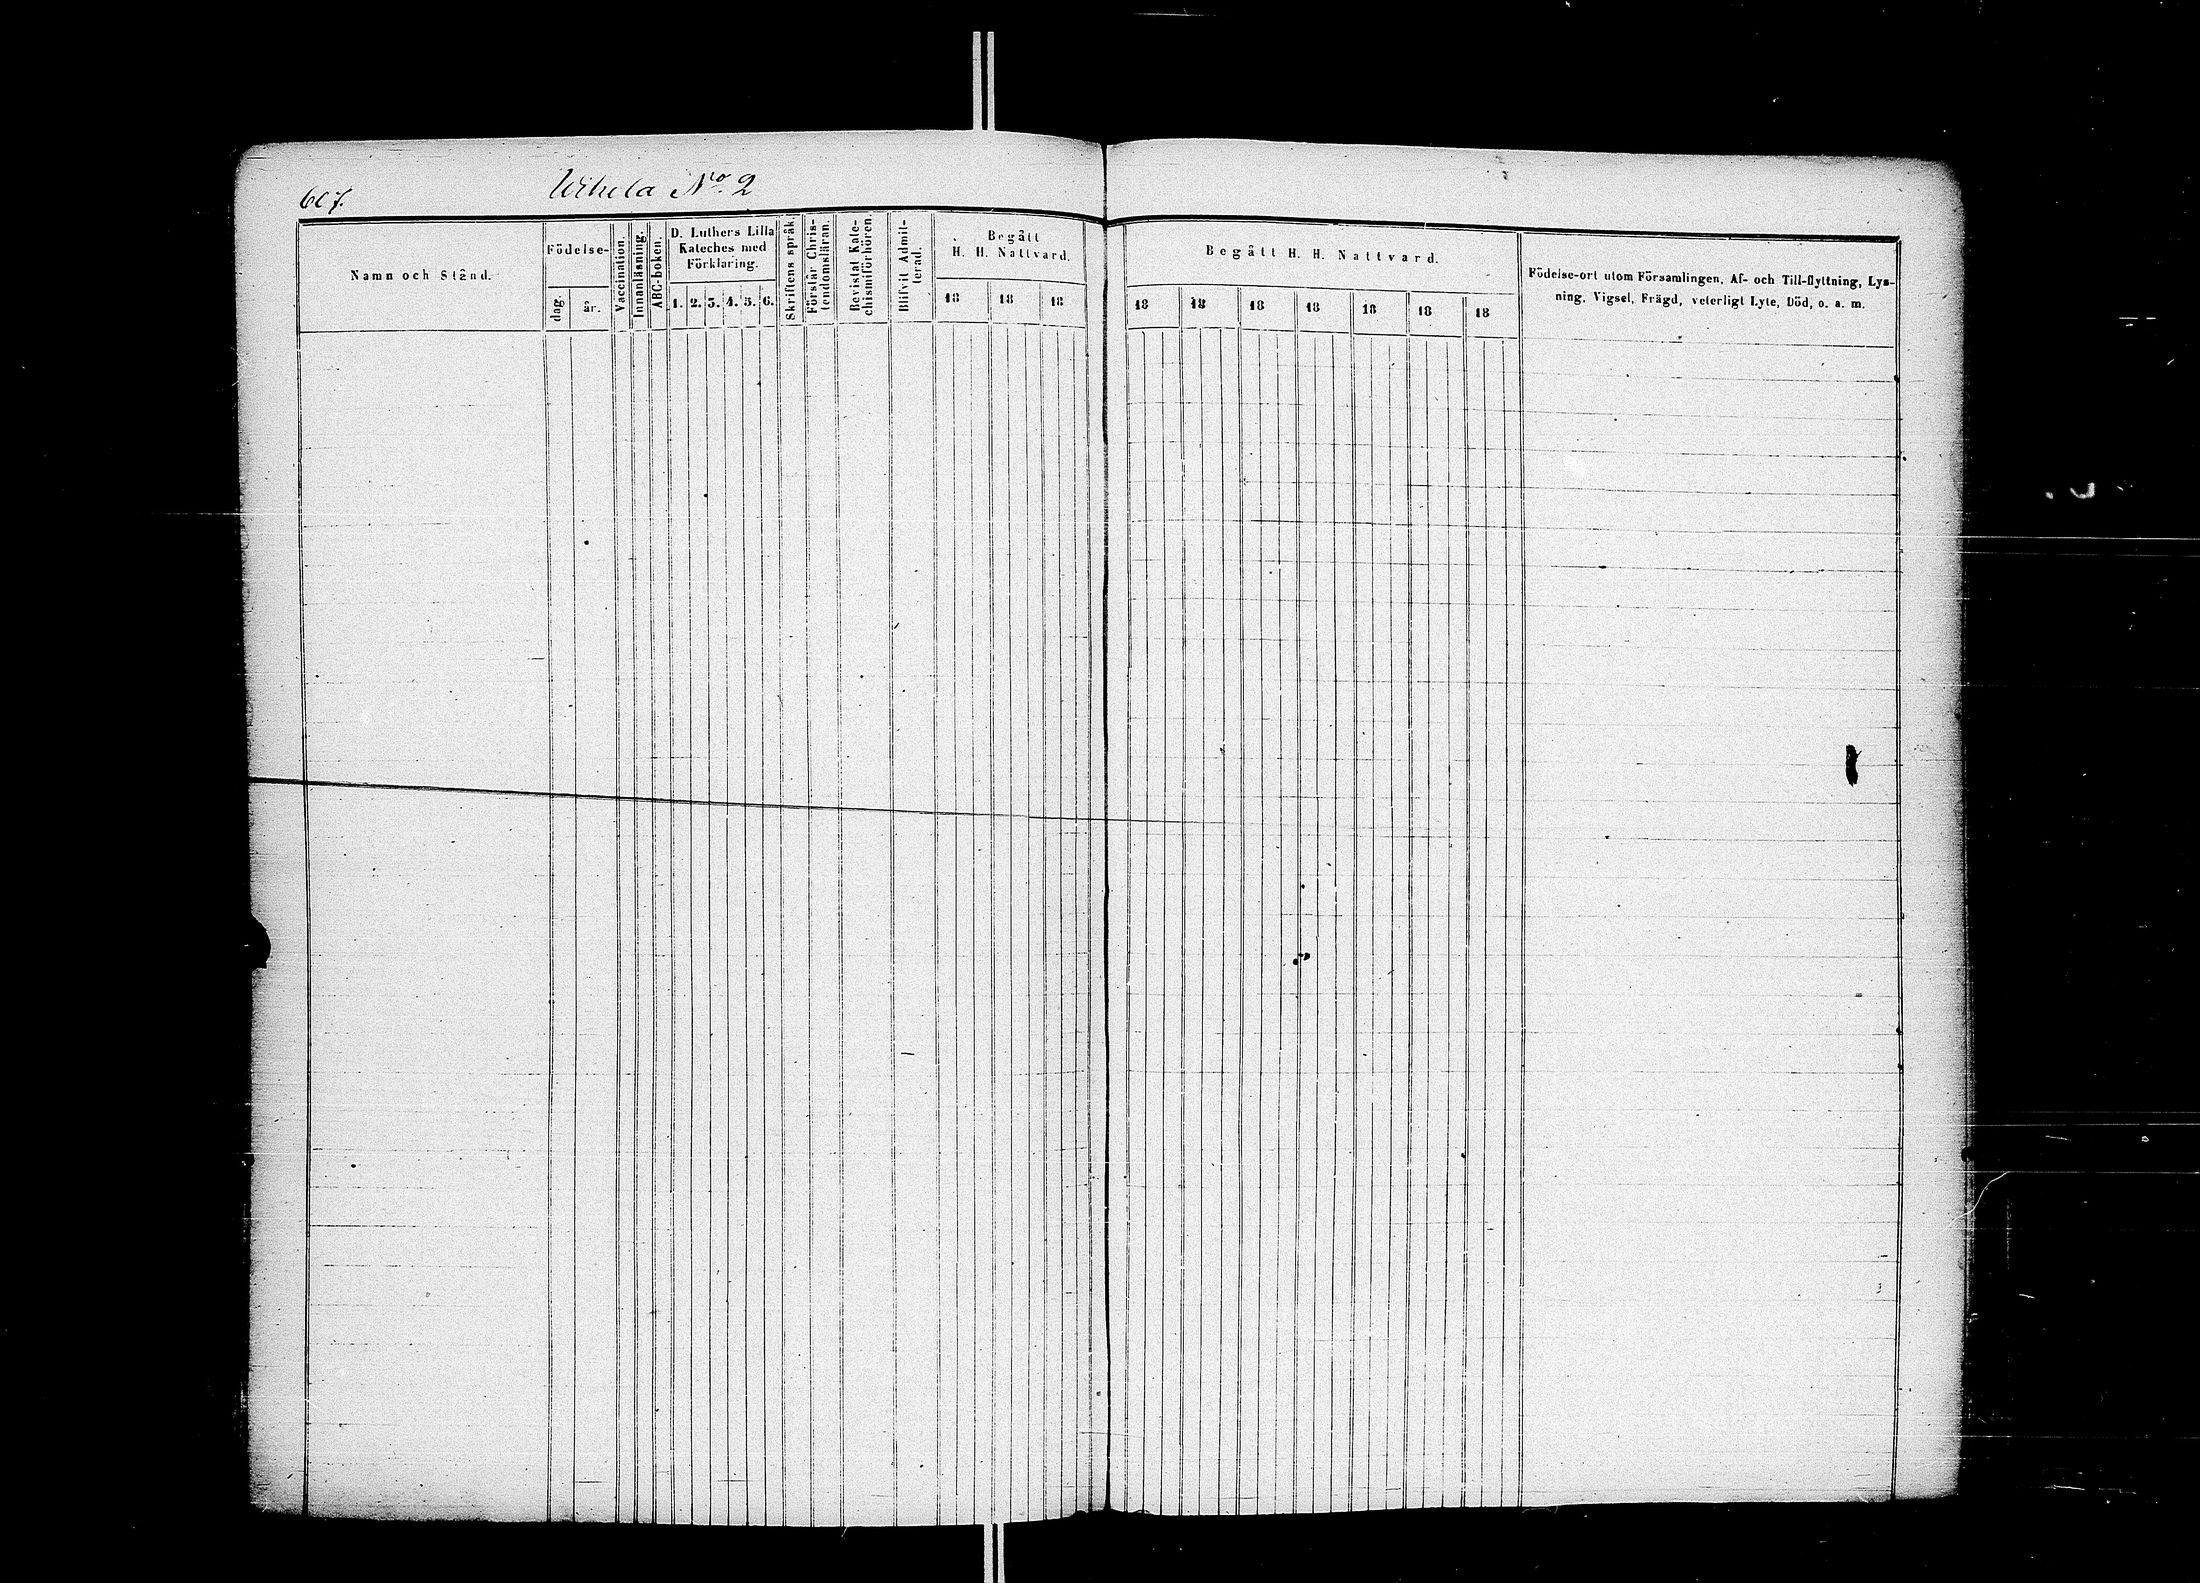 607.
Uihela No 2
Namn och Stånd.
Födelse-
dag.
år.
Vaccination.
Innanläsning.
ABC-boken.
D. Luthers Lilla
Kateches med
Förklaring.
1. 2. 3. 4. 5. 6.
Skriftens språk.
Förstår Chris-
tendomsläran.
Bevistat Kate-
chismiförhören.
Blifvit Admit-
terad.
Begått
H. H. Nattvard.
18 18 18
Begått H. H. Nattvard.
18 18 18 18 18 18 18
Födelse-ort utom Församlingen, Af- och Till-flyttning, Lys-
ning, Vigsel, Frägd, veterligt Lyte, Död, o. a. m.